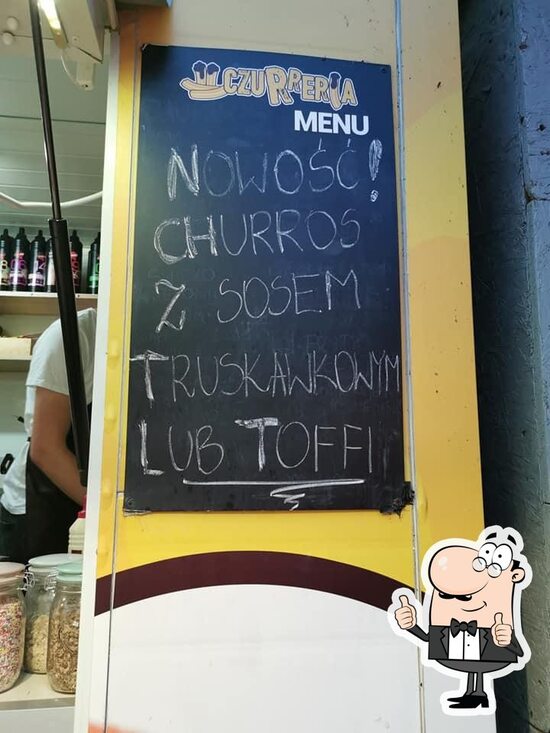 CZURRERIA
MENU
NOWOŚĆ!
CHURROS
Z SOSEM
TRUSKAWKOWYM
LUB TOFFI